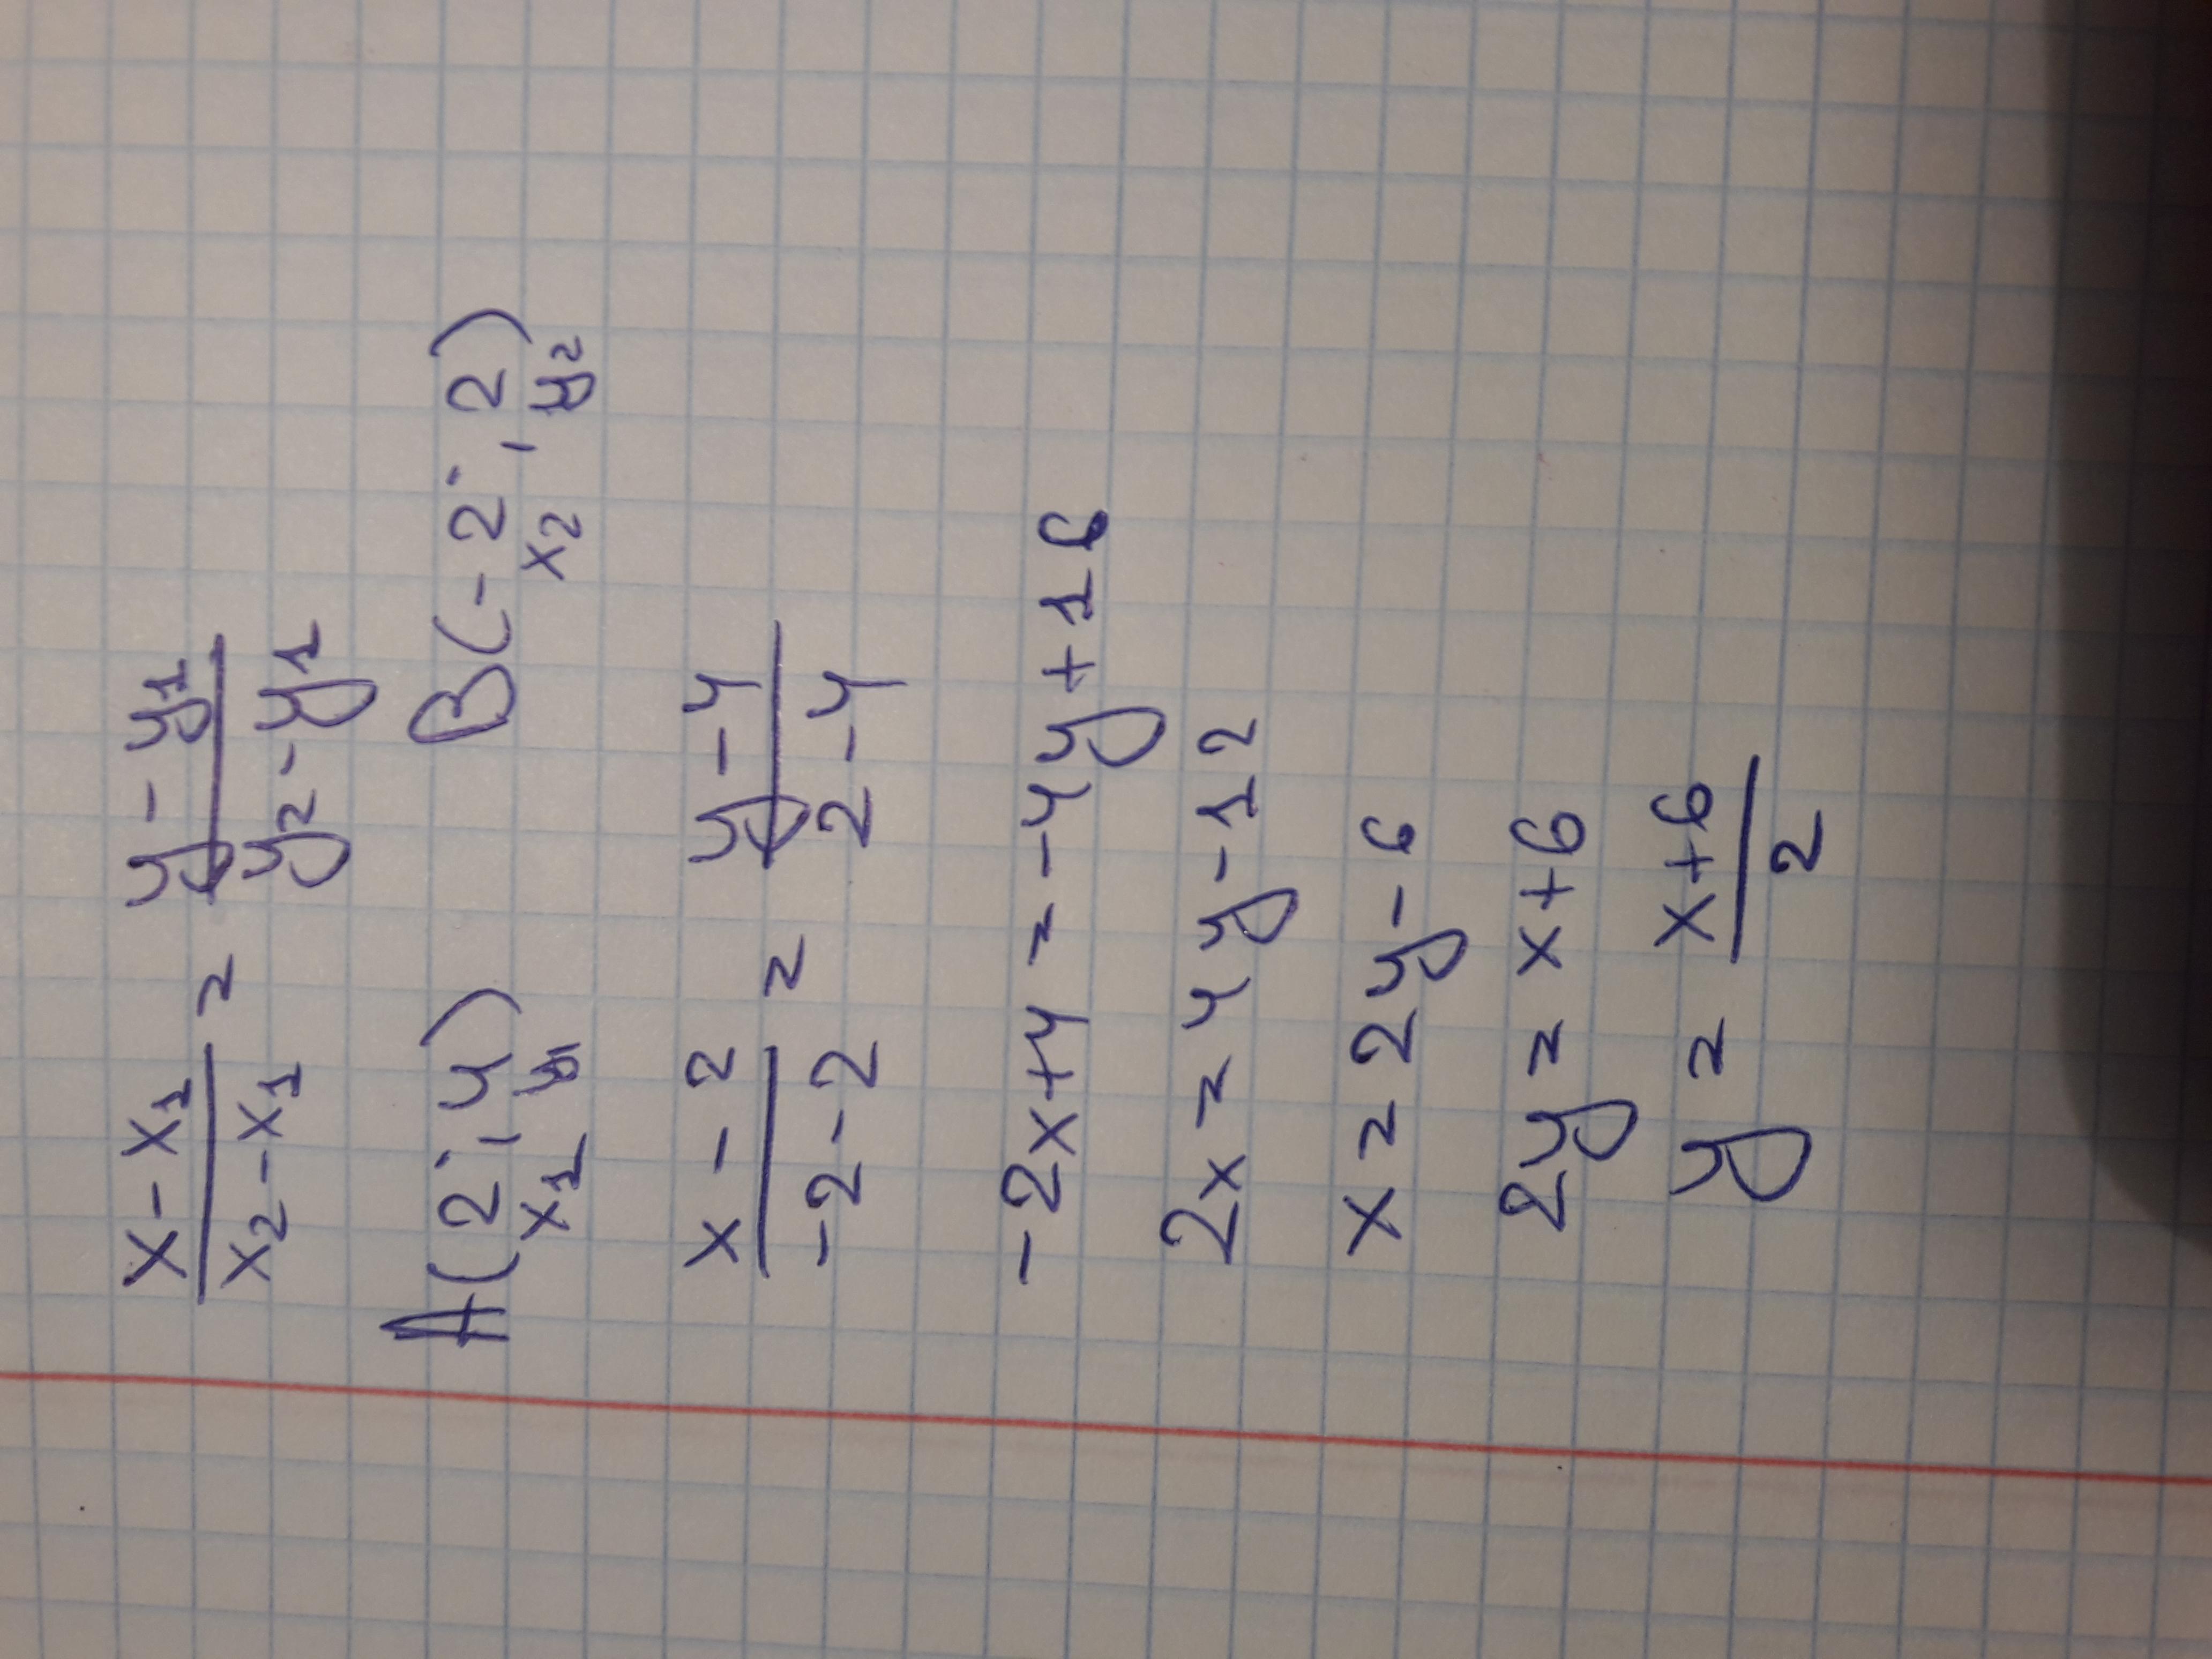 x-x₁/x₂-x₁ = y-y₁/y₂-y₁
A(2;4) B(-2;2)
x₁ y₁ x₂ y₂
x-2/-2-2 = y-4/2-4
-2x+4=-4y+16
2x=4y-12
x=2y-6
2y=x+6
y=x+6/2